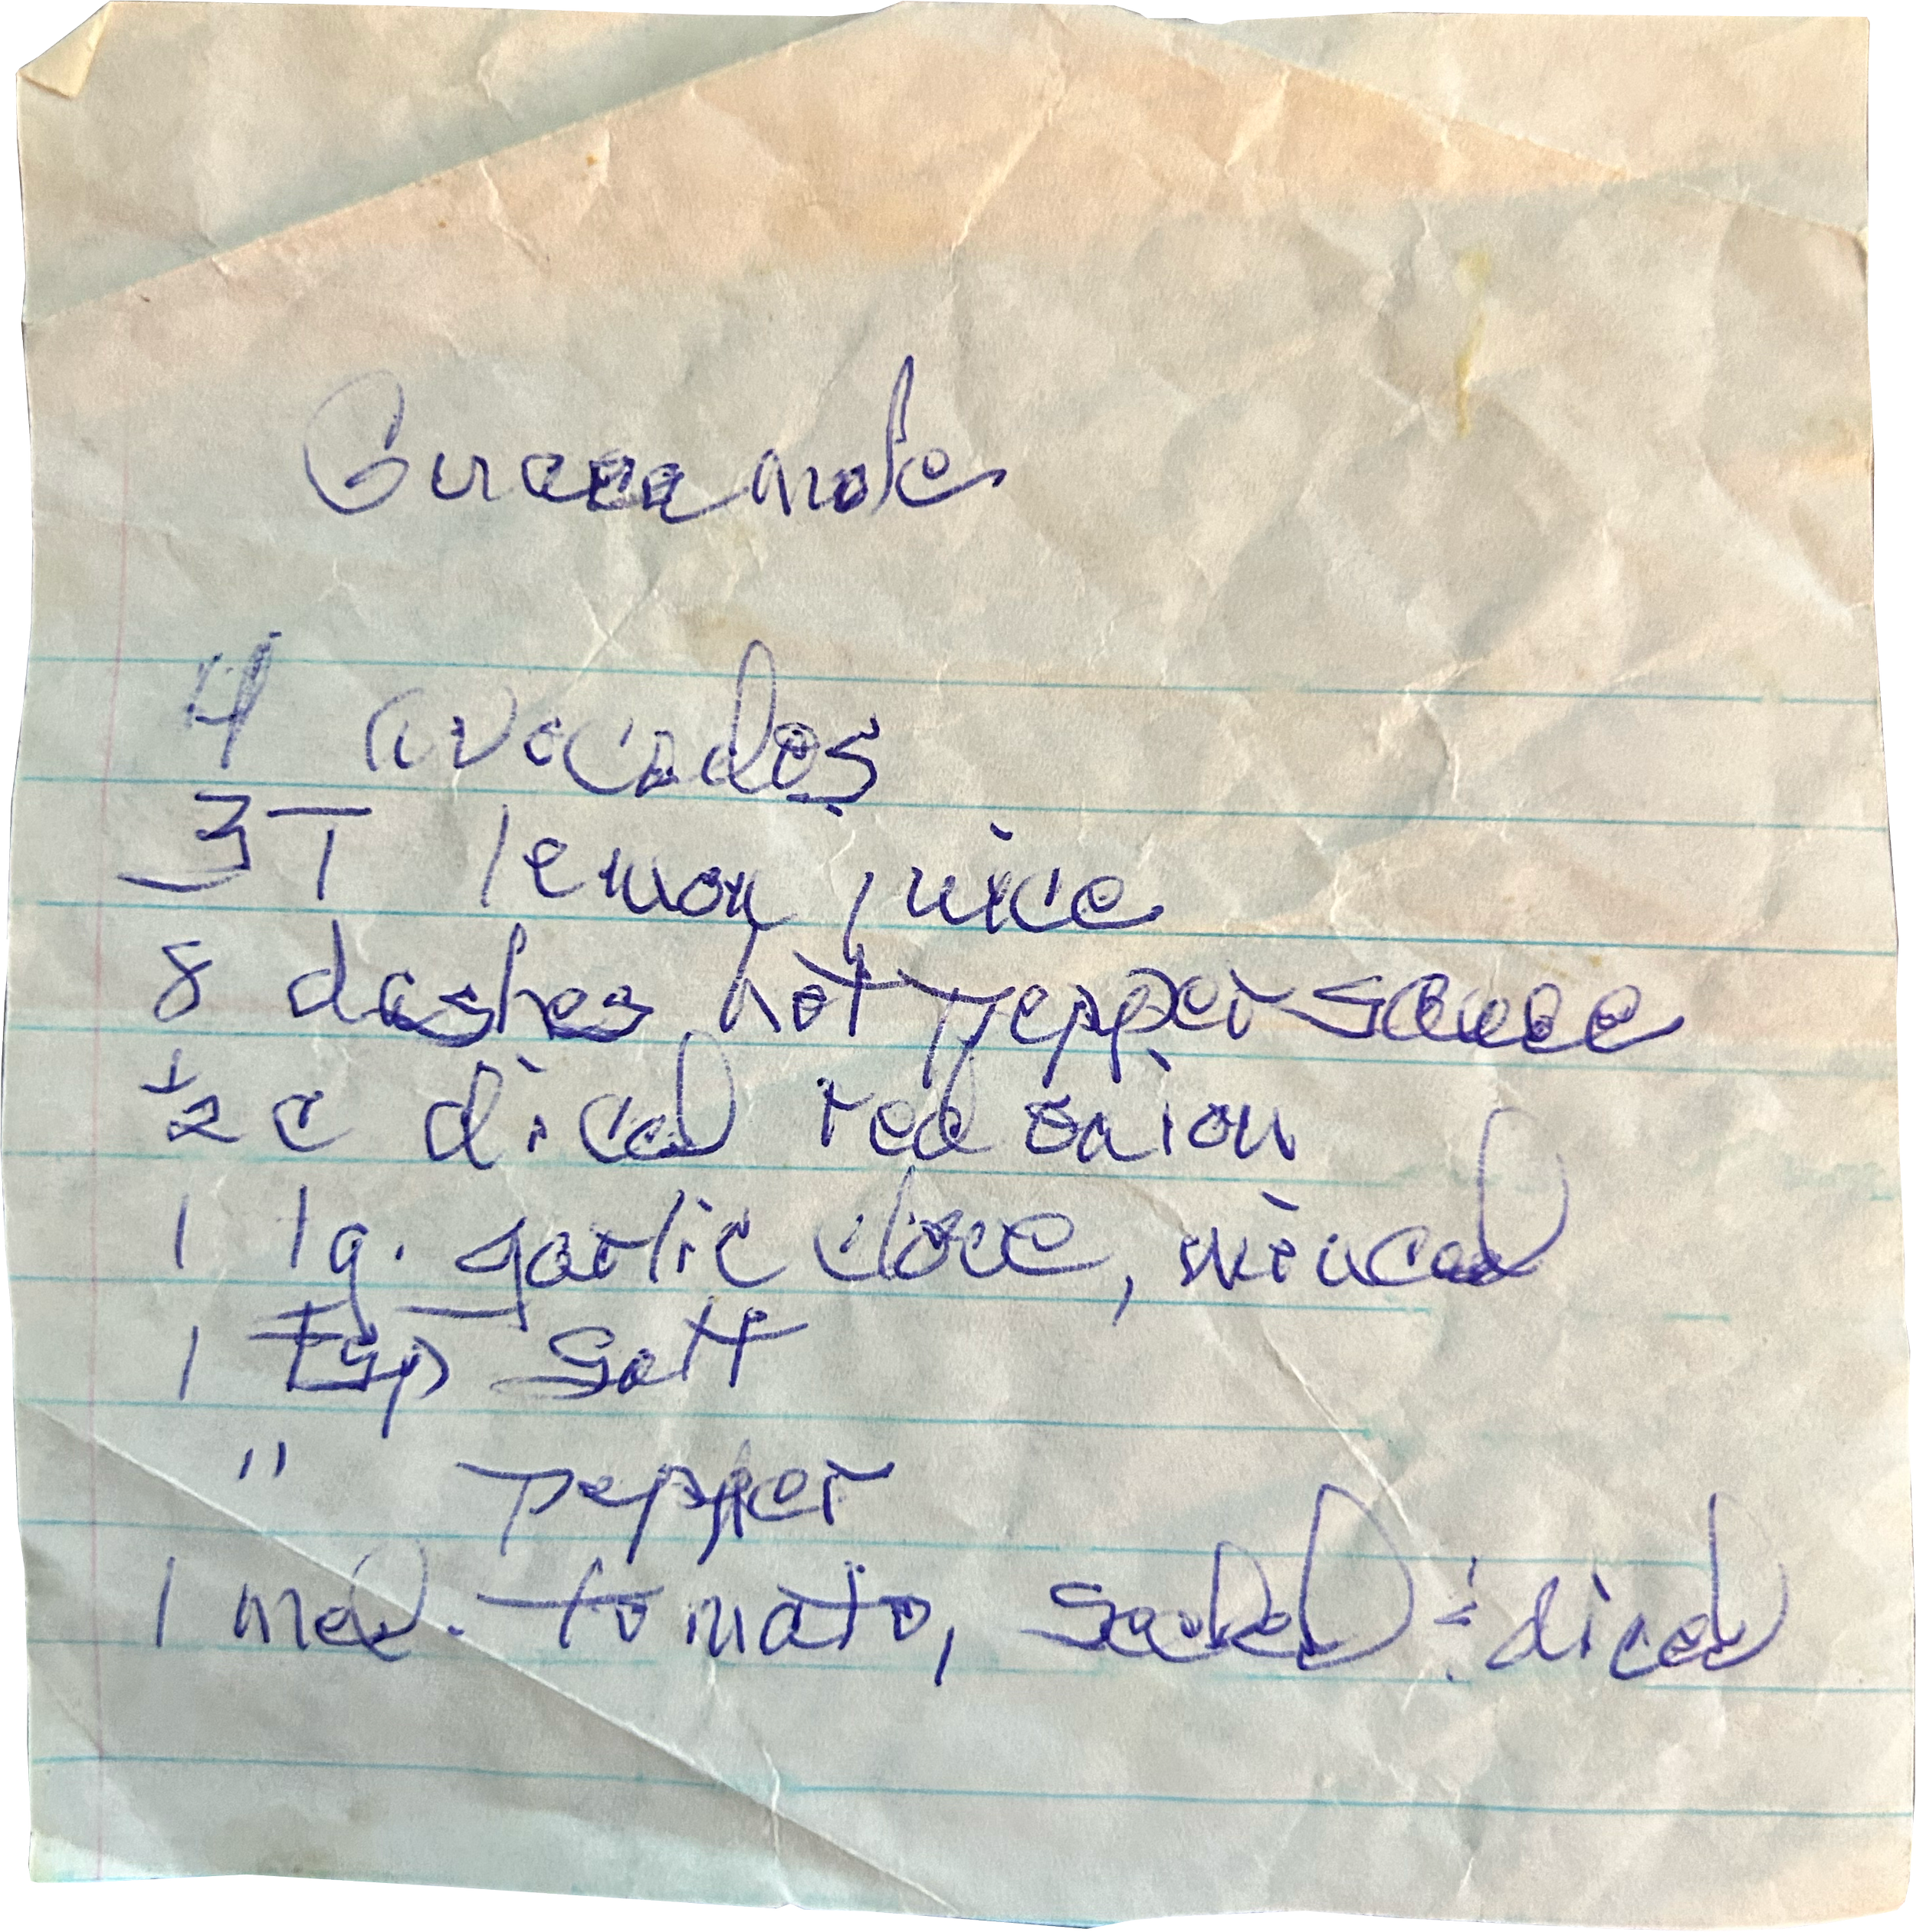 Guacamole
4 avocados
3T lemon juice
8 dashes hot pepper sauce
½ c diced red onion
1 lg. garlic clove, minced
1 tsp salt
" pepper
1 med. tomato, seeded & diced